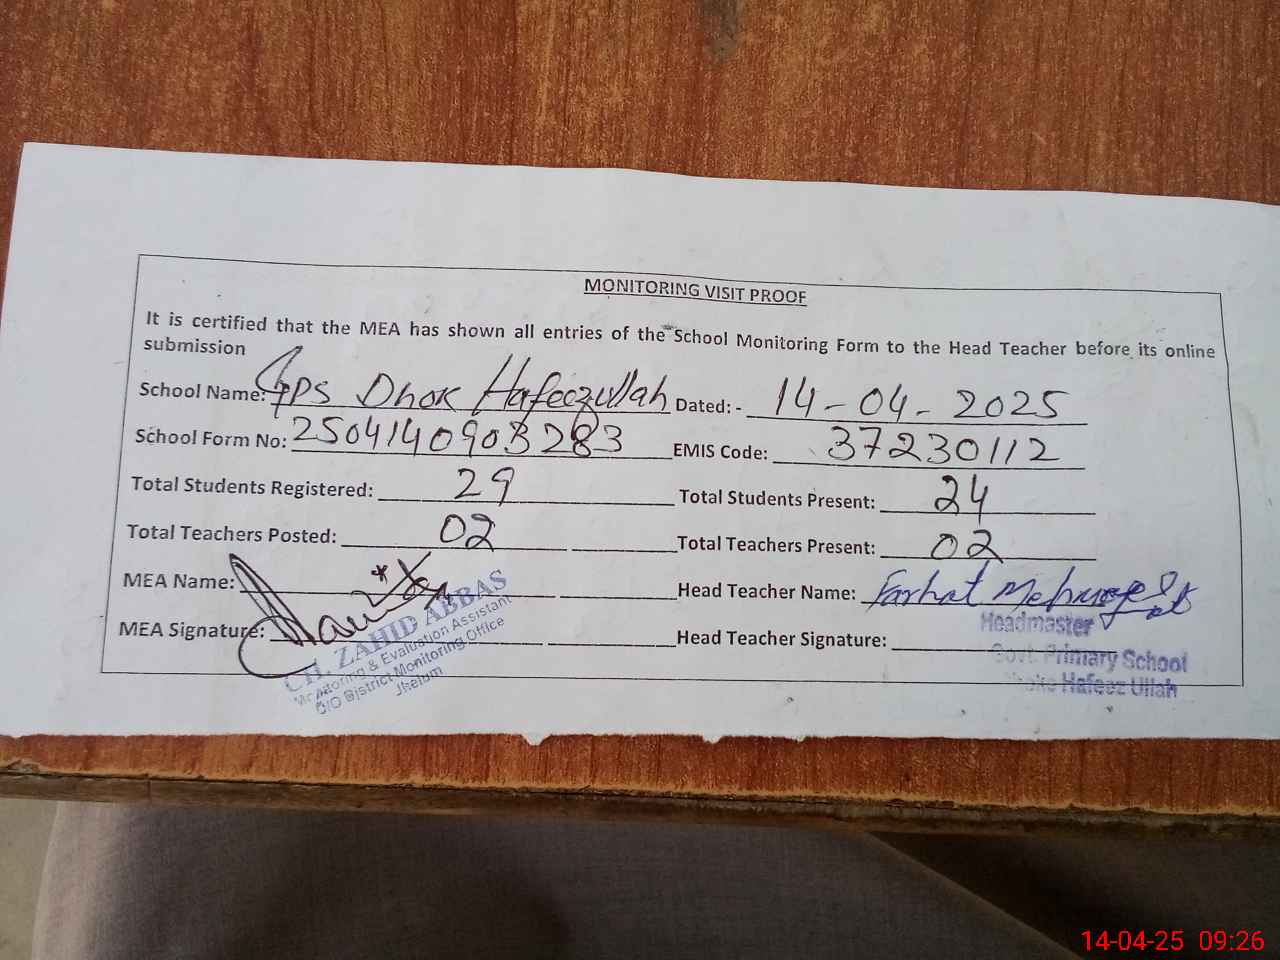 MONITORING VISIT PROOF
It is certified that the MEA has shown all entries of the School Monitoring Form to the Head Teacher before its online
submission
School Name: GPS Dhok Hafeezullah Dated: - 14-04-2025
School Form No: 2504140903283 EMIS Code: 37230112
Total Students Registered: 29 Total Students Present: 24
Total Teachers Posted: 02 Total Teachers Present: 02
MEA Name: Head Teacher Name: Farhat Mehnaz
MEA Signature: Head Teacher Signature:
CH. ZAHID ABBAS
Monitoring & Evaluation Assistant
O/O District Monitoring Office
Jhelum
Headmaster
Govt. Primary School
Dhoke Hafeez Ullah
14-04-25 09:26